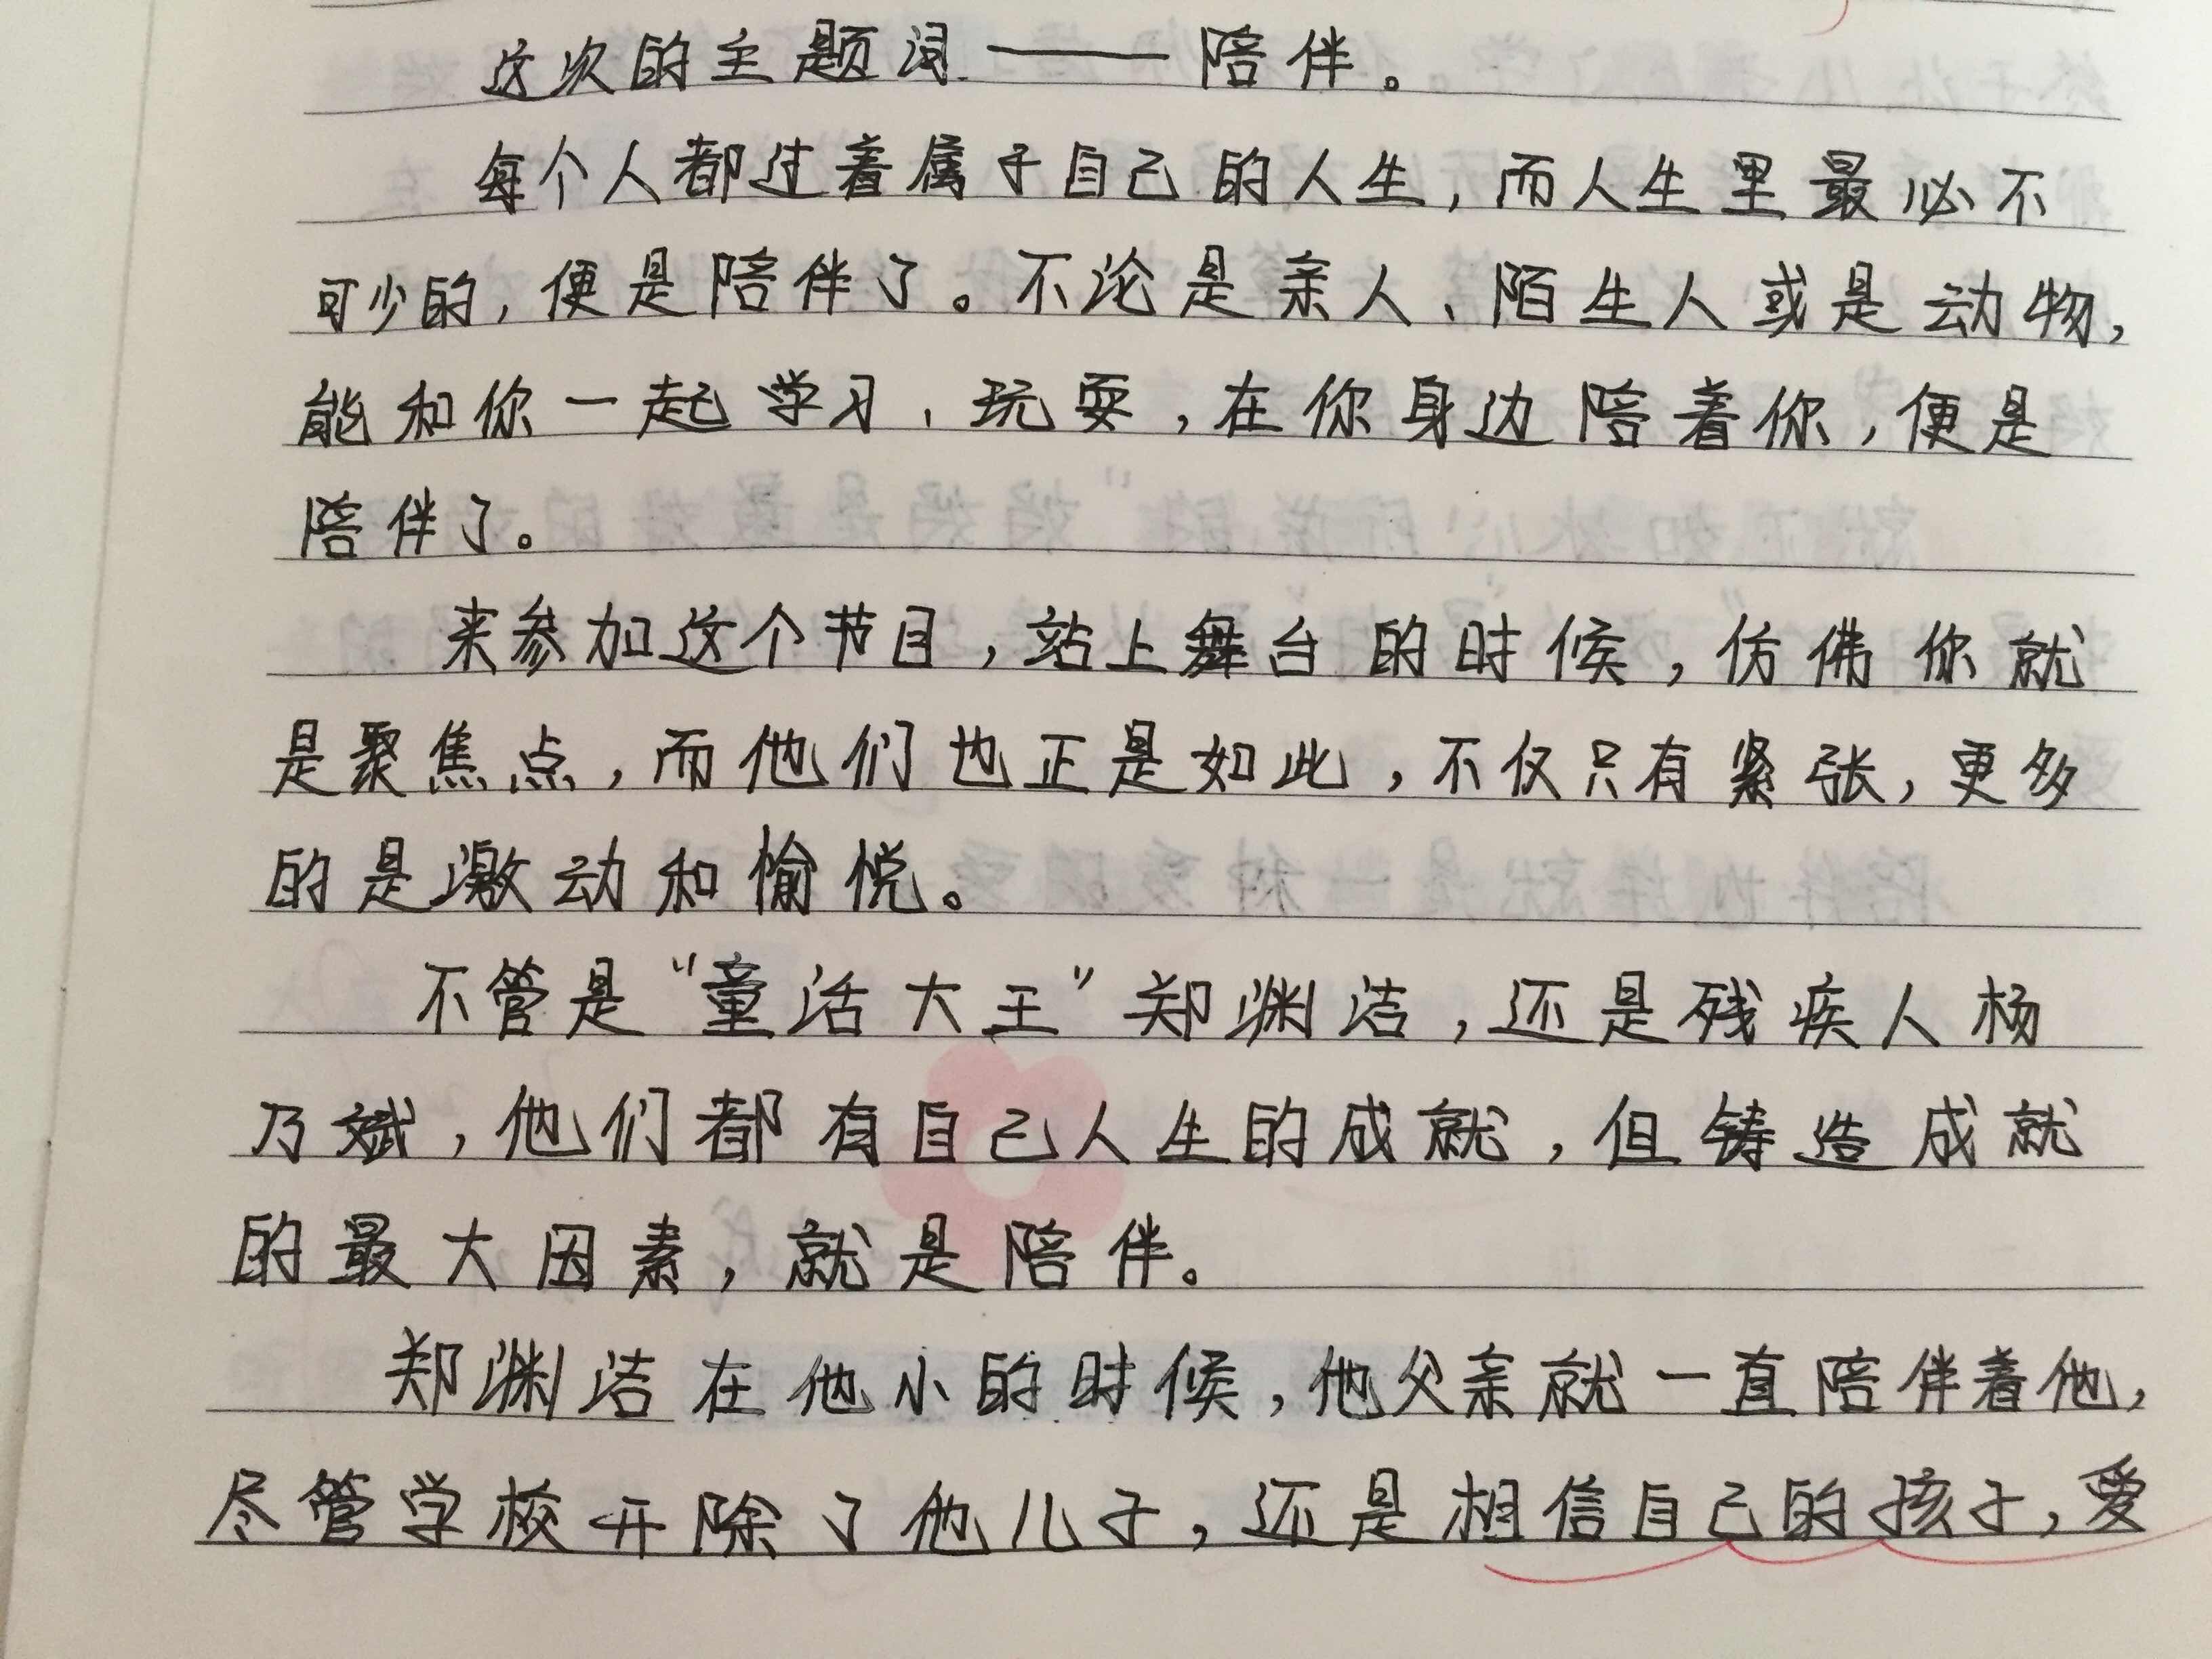 这次的主题词——陪伴。
每个人都过着属于自己的人生，而人生里最必不
可少的，便是陪伴了。不论是亲人、陌生人或是动物，
能和你一起学习、玩耍，在你身边陪着你，便是
陪伴了。
来参加这个节目，站上舞台的时候，仿佛你就
是聚焦点，而他们也正是如此，不仅只有紧张，更多
的是激动和愉悦。
不管是“童话大王”郑渊洁，还是残疾人杨
乃斌，他们都有自己人生的成就，但铸造成就
的最大因素，就是陪伴。
郑渊洁在他小的时候，他父亲就一直陪伴着他，
尽管学校开除了他儿子，还是相信自己的孩子，爱